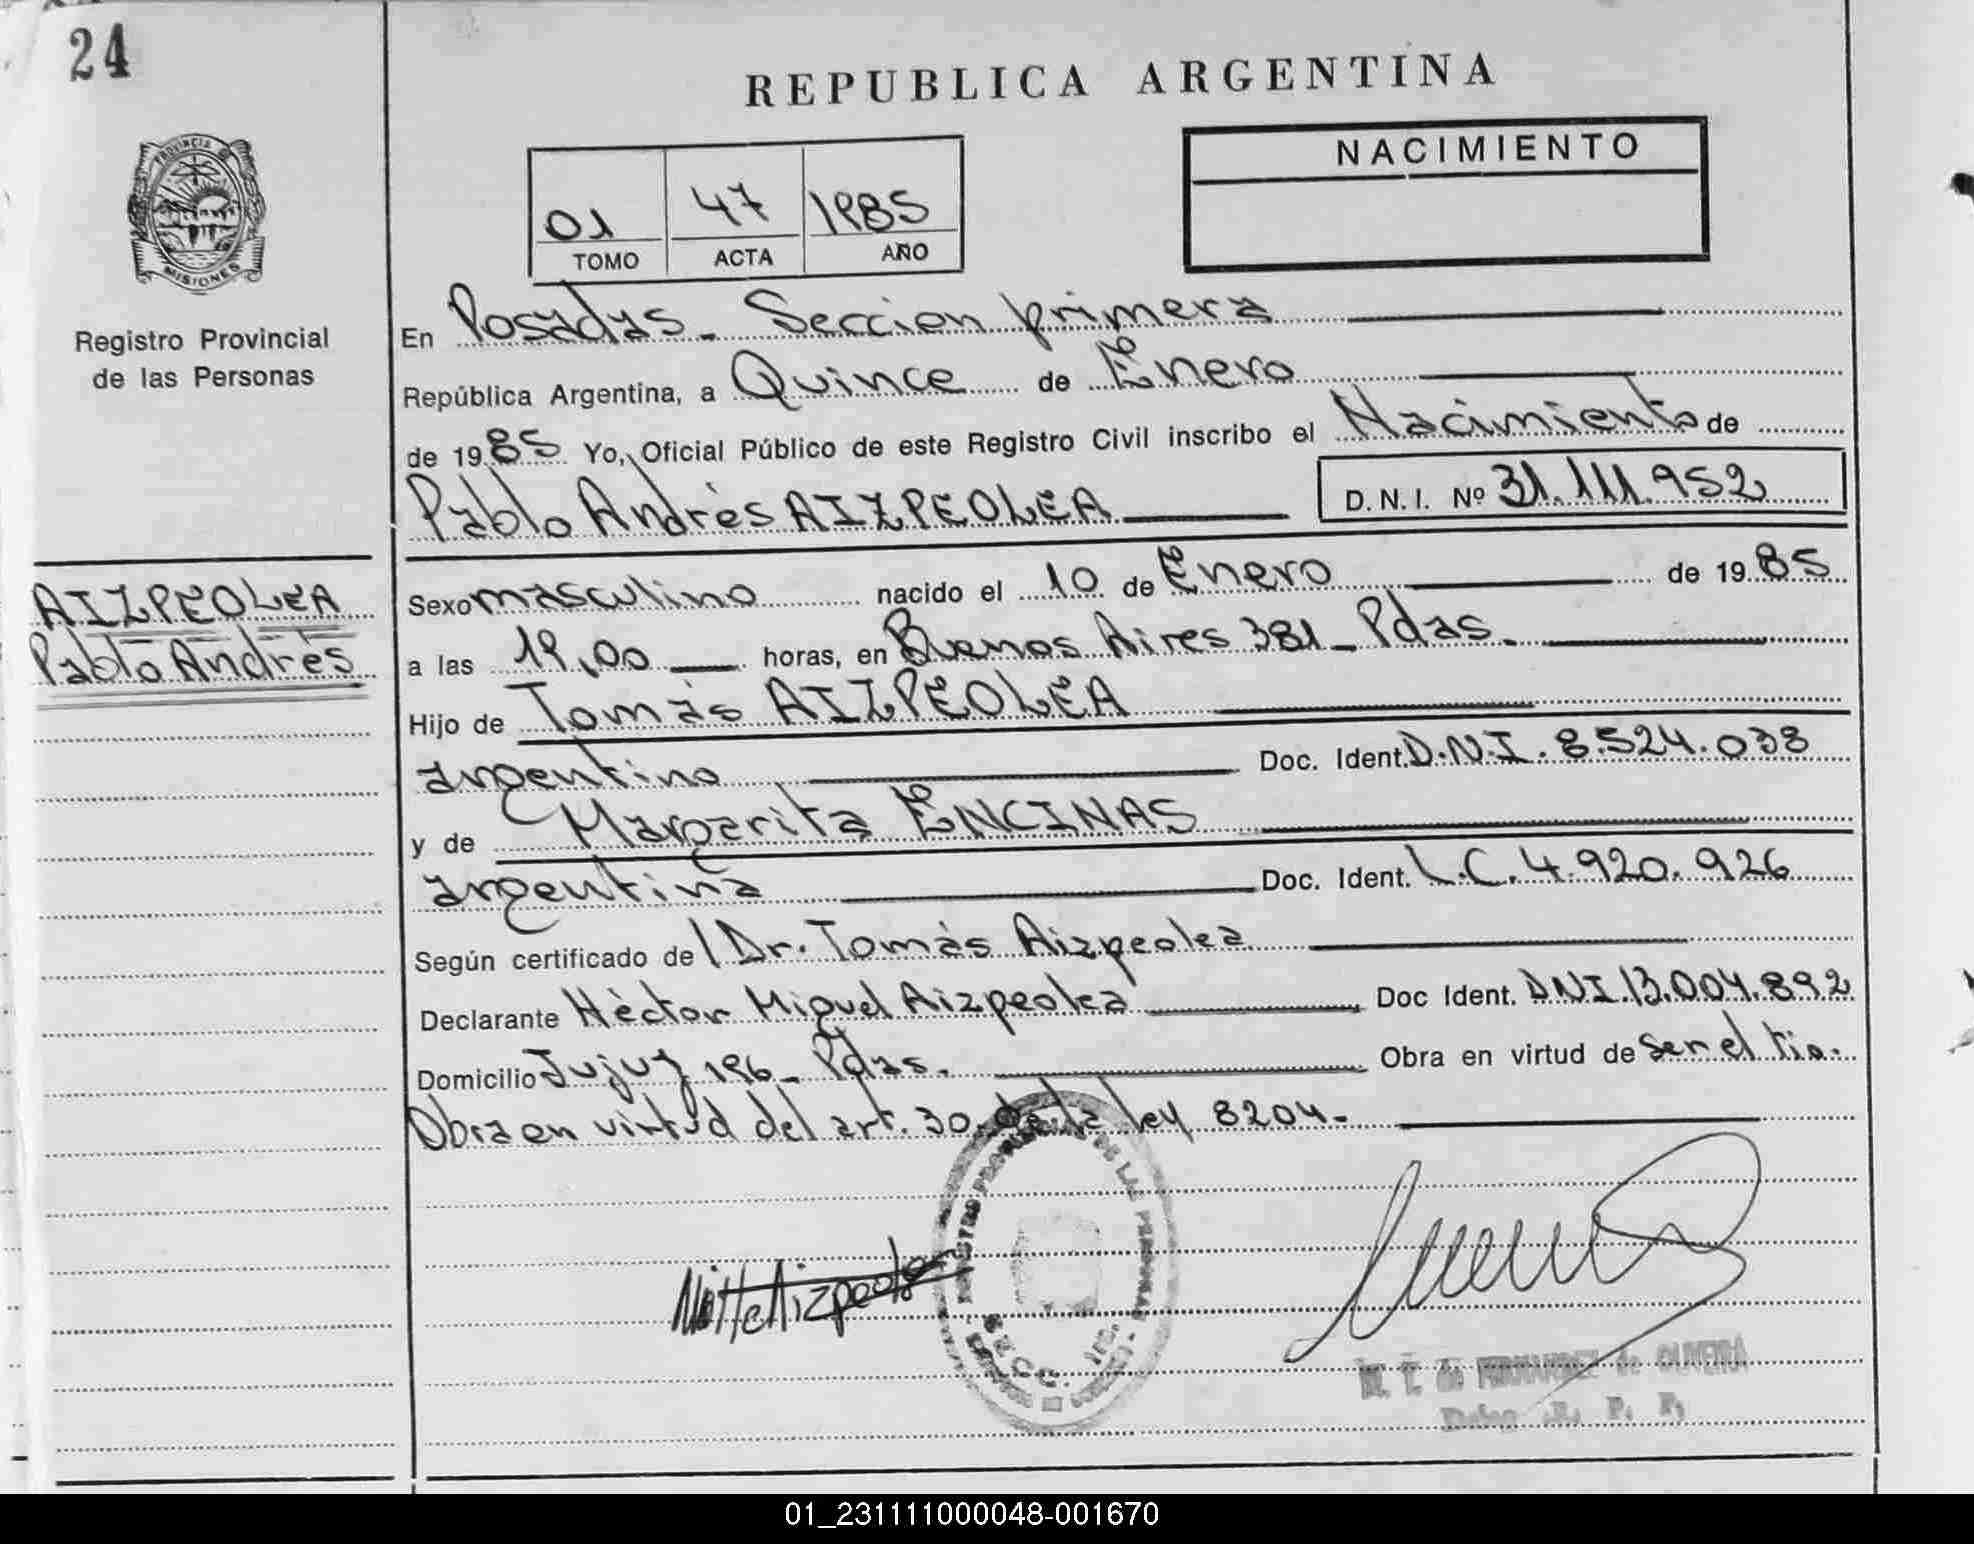 24
REPUBLICA ARGENTINA
PROVINCIA DE
MISIONES
Registro Provincial
de las Personas
01 47 1985
TOMO ACTA AÑO
NACIMIENTO
En Posadas - Seccion primera
República Argentina, a Quince de Enero
de 1985 Yo, Oficial Público de este Registro Civil inscribo el Nacimiento de
Pablo Andrès AIZPEOLEA D.N.I. Nº 31.111.952
AIZPEOLEA
Pablo Andrès
Sexo masculino nacido el 10 de Enero de 1985
a las 19,00 horas, en Buenos Aires 381 - Pdas.
Hijo de Tomàs AIZPEOLEA
argentino Doc. Ident. D.N.I. 8.524.038
y de Margarita ENCINAS
argentina Doc. Ident. L.C. 4.920.926
Según certificado del Dr. Tomàs Aizpeolea
Declarante Hèctor Miguel Aizpeolea Doc Ident. DNI.13.004.892
Domicilio Jujuy 196 - Pdas. Obra en virtud de ser el tio.
Obra en virtud del art. 30 de la ley 8204-
Aizpeolea
DE LAS PERSONAS
SECC. 1ra.
M. T. de FERNANDEZ de OLIVEIRA
R. P. P.
01_231111000048-001670